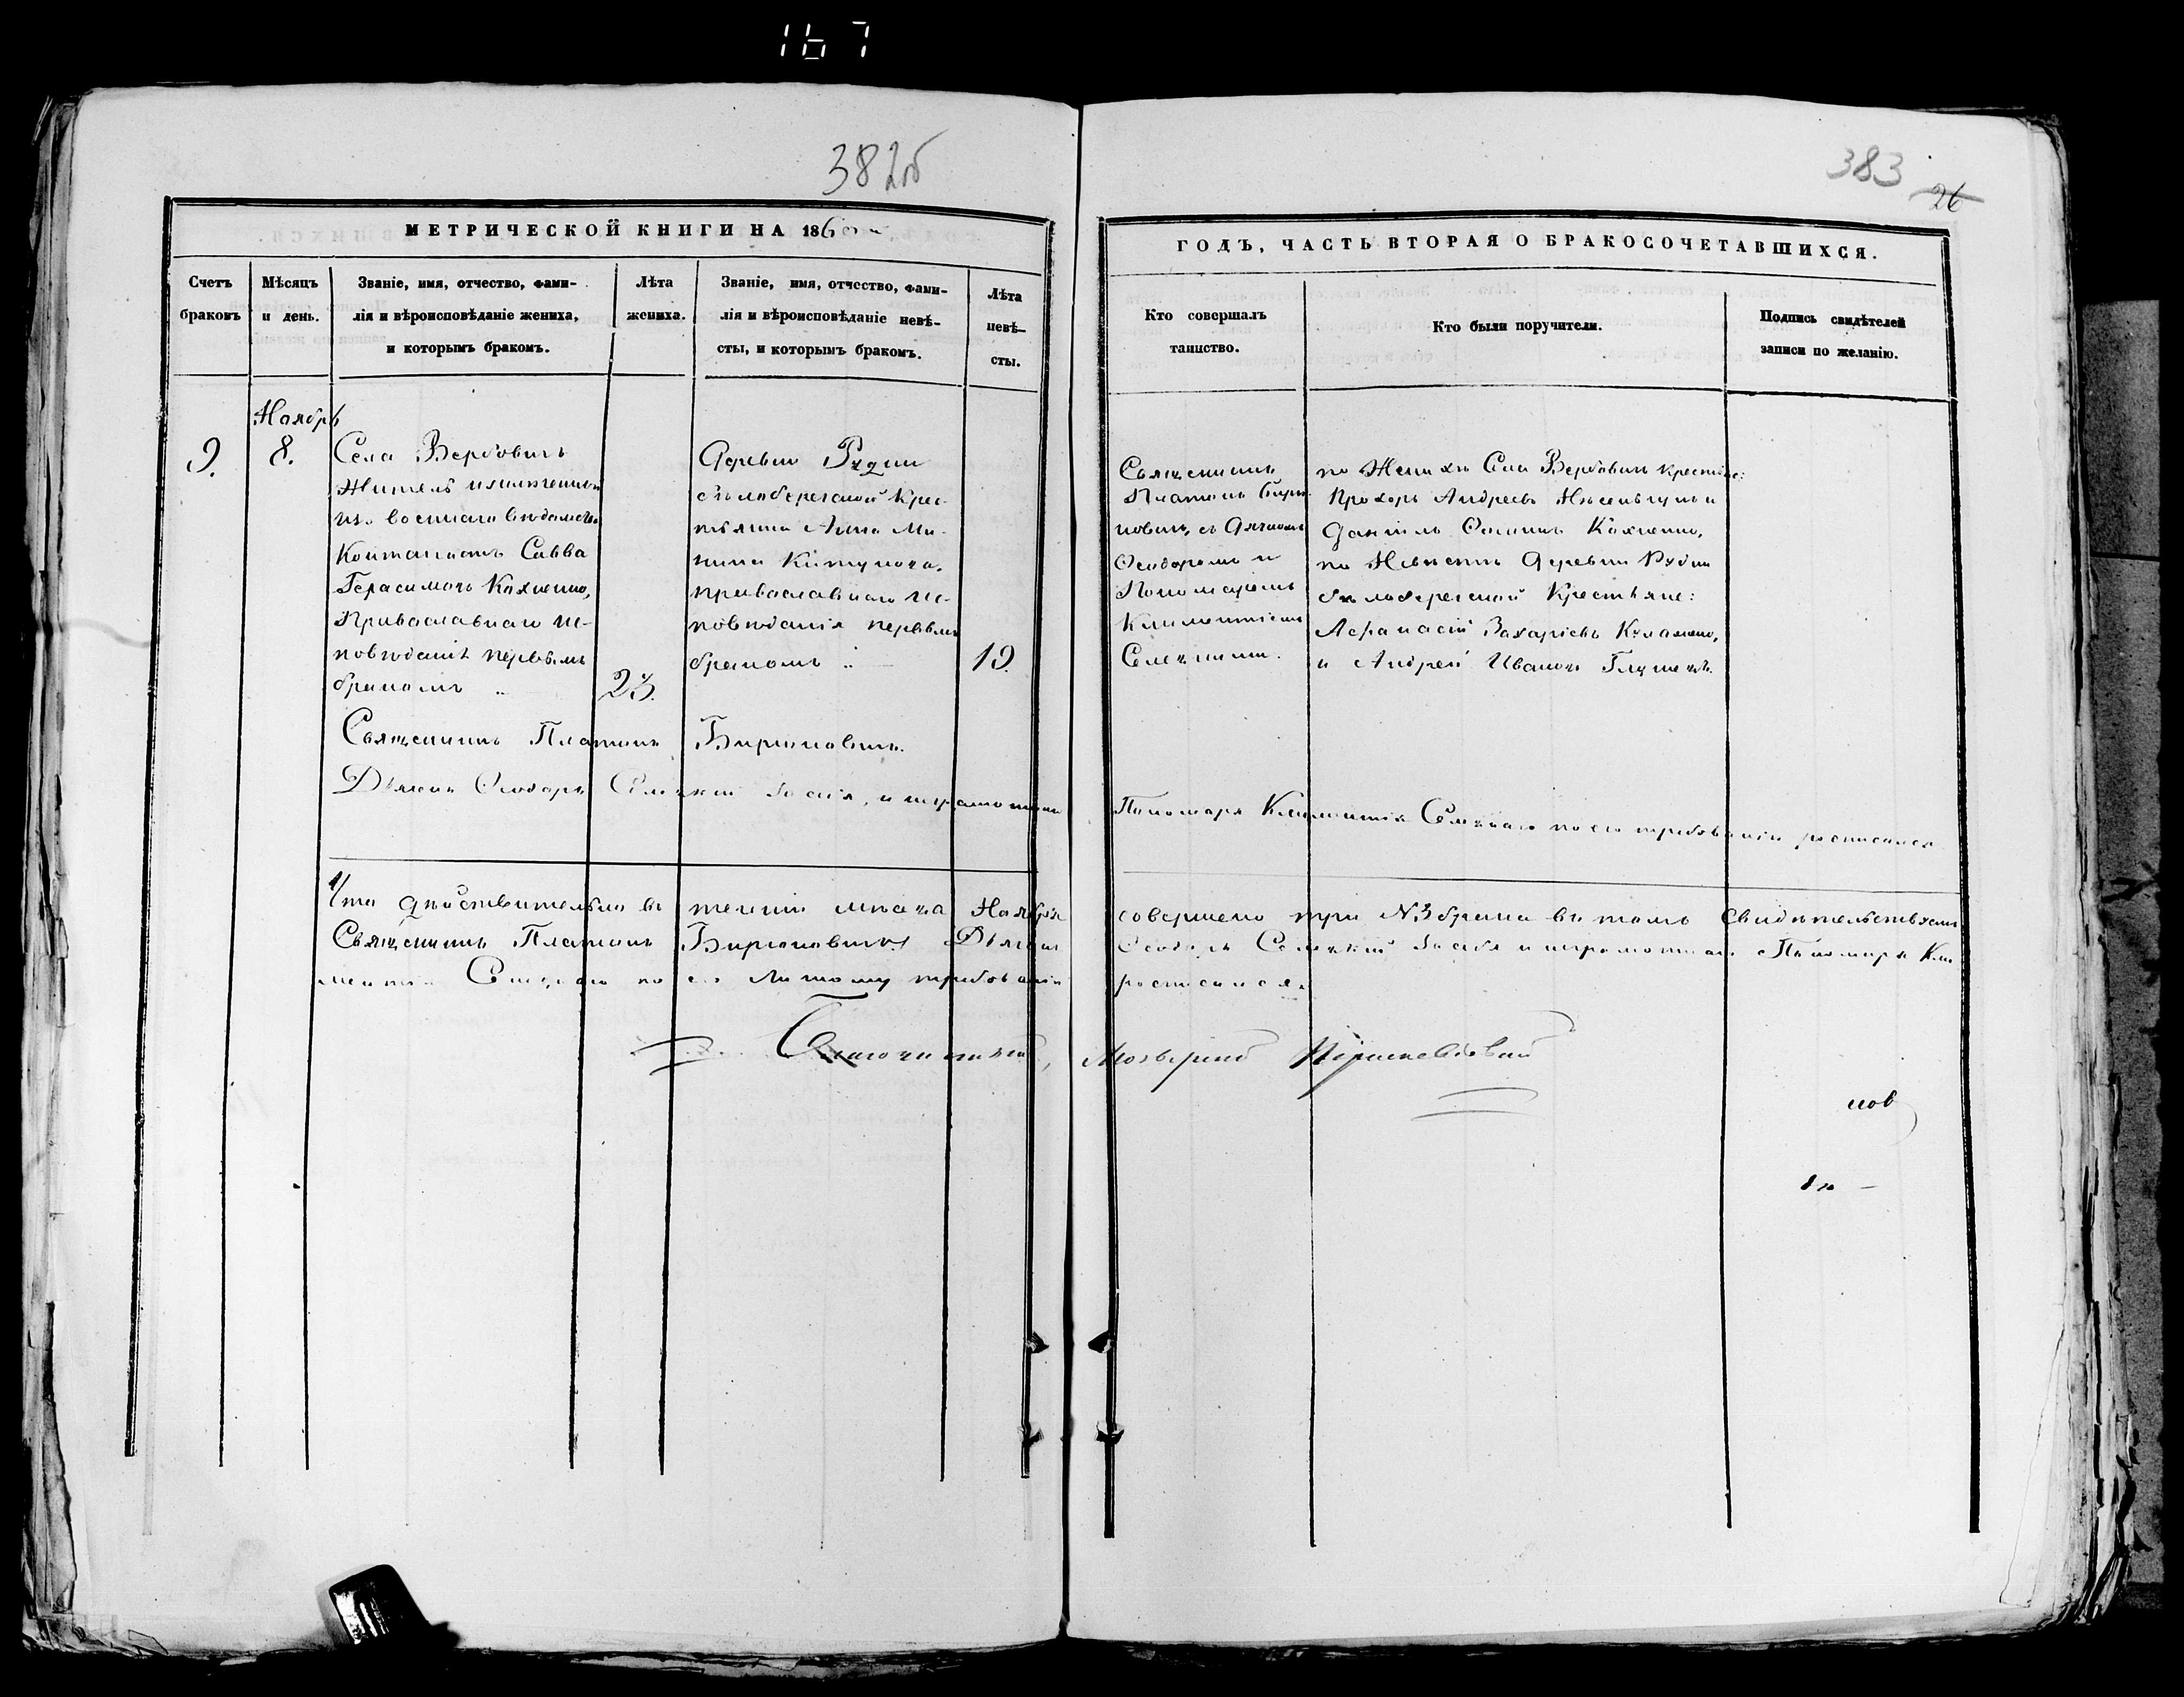 167
382об
383
26
МЕТРИЧЕСКОЙ КНИГИ НА 1860
ГОДЪ, ЧАСТЬ ВТОРАЯ О БРАКОСОЧЕТАВШИХСЯ.
Счетъ
браковъ
Мѣсяцъ
и день.
Званіе, имя, отчество, фами-
лія и вѣроисповѣданіе жениха,
и которымъ бракомъ.
Лѣта
жениха.
Званіе, имя, отчество, фами-
лія и вѣроисповѣданіе невѣ-
сты, и которымъ бракомъ.
Лѣта
невѣ-
сты.
Кто совершалъ
таинство.
Кто были поручители.
Подпись свидѣтелей
записи по желанію.
9.
Ноябрь
8.
Села Вербовичъ
Житель
изъ военнаго вѣдомства
Кантонистъ Савва
Герасимовъ Кохненко,
Православнаго ис-
повѣданія первымъ
бракомъ
23.
Деревни Рудни
Крес-
тьянка Анна Ми-
нина
православнаго ис-
повѣданія первымъ
бракомъ
19.
Священникъ
Платонъ Бирю-
ковичъ, съ Дьячкомъ
Ѳеодоромъ и
Пономаремъ
Климентіемъ
Селецкимъ.
по Женихѣ Села Вербовичъ Крестьяне:
Прохоръ Андреевъ и
Даніилъ Кохненко,
по Невѣстѣ Деревни Рудни
Крестьяне:
Афанасій Захаріевъ
и Андрей Ивановъ
Священникъ Платонъ Бирюковичъ.
Дьячекъ Ѳеодоръ Селецкій за себя, и неграмотнаго
Пономаря Климентія Селецкаго по его требованію росписался
Что дѣйствительно въ теченіи мѣсяца Ноября
совершено три №3 брака въ томъ Свидѣтельствуемъ
Священникъ Платонъ Бирюковичъ Дьячекъ
Ѳеодоръ Селецкій за себя и неграмотнаго Пономаря Кли
ментія Селецкаго по его личному требованію
росписался.
Благочинный,